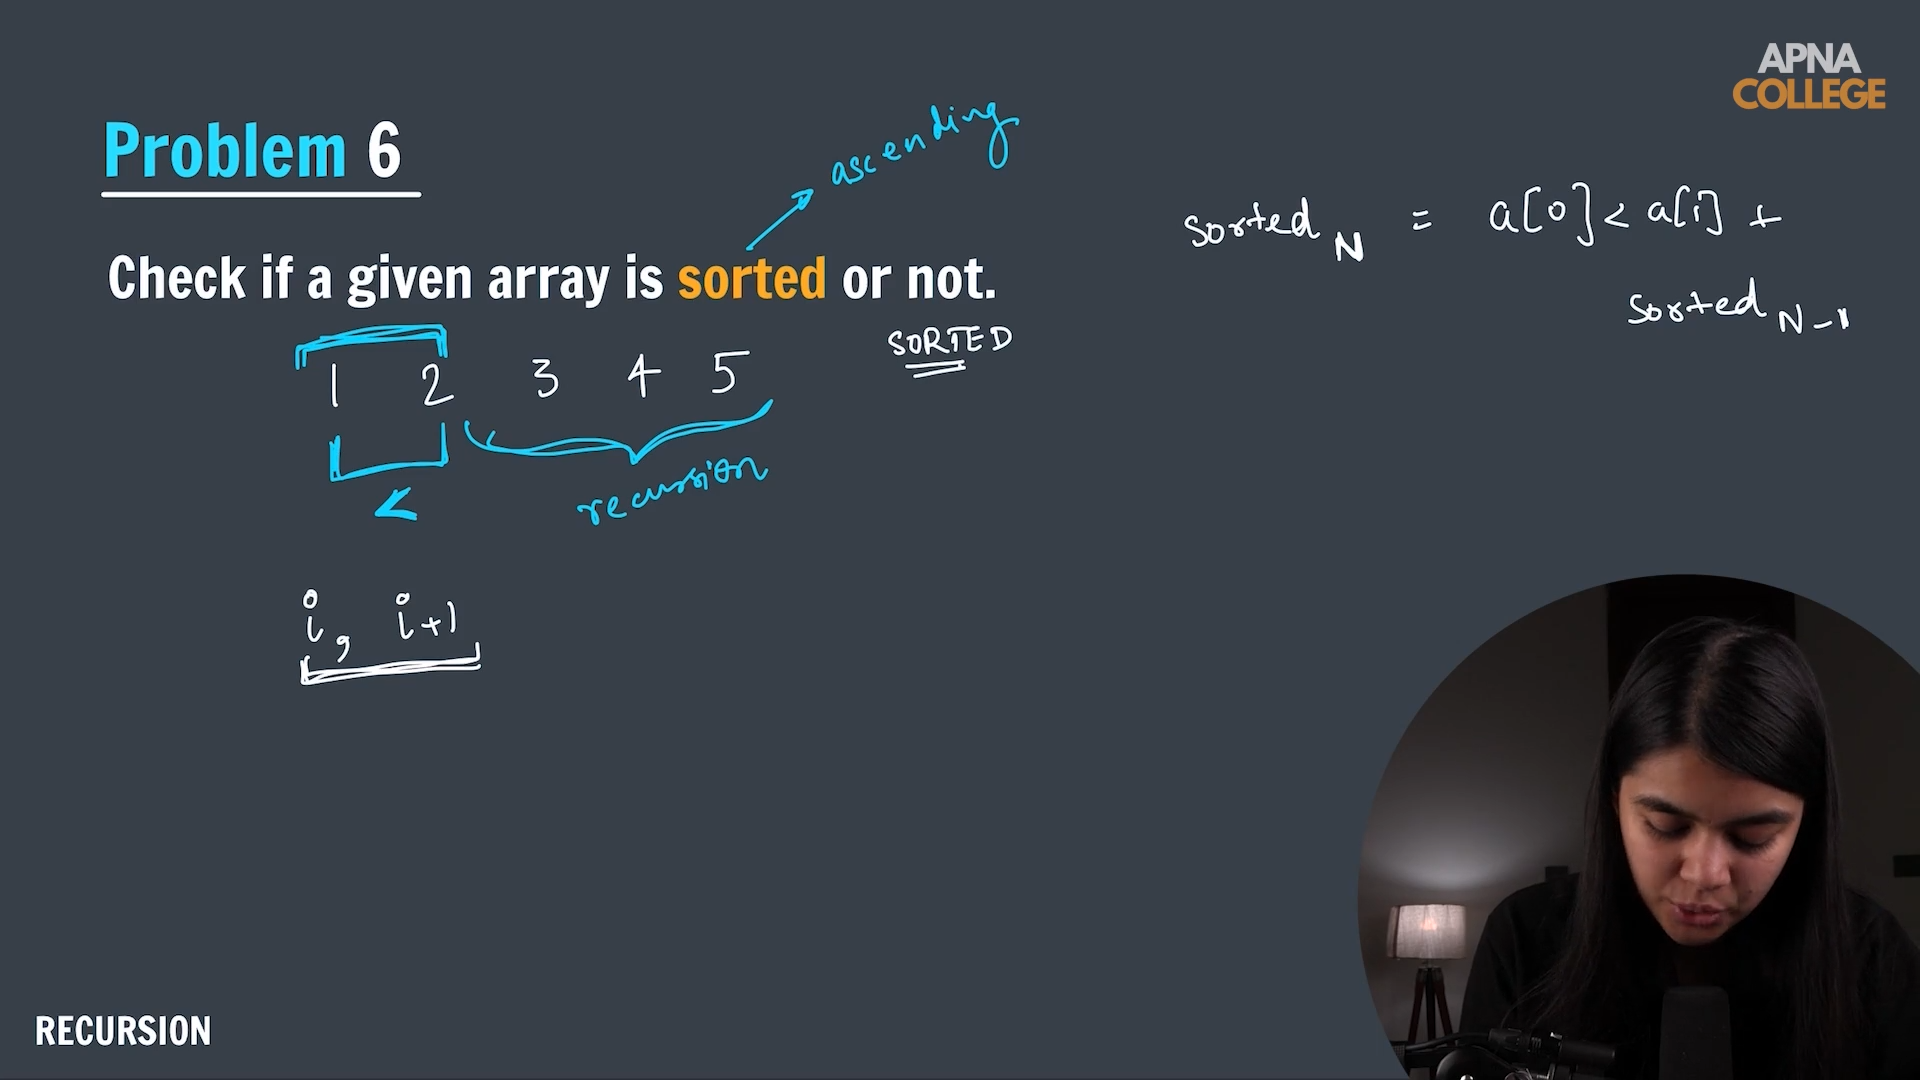 APNA
COLLEGE
Problem 6
ascending
Check if a given array is sorted or not.
1 2 3 4 5
SORTED
<
recursion
i, i+1
sorted N = a[0] < a[1] +
sorted N-1
RECURSION